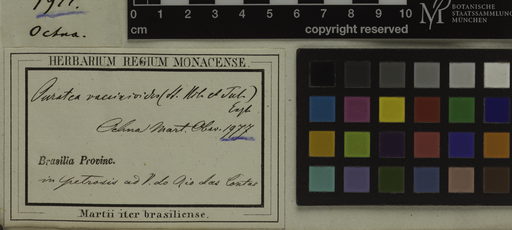 1977.
Ochna.
0 1 2 3 4 5 6 7 8 9 10
cm copyright reserved
BOTANISCHE
STAATSSAMMLUNG
MÜNCHEN
HERBARIUM REGIUM MONACENSE.
Ouratea vaccinioides (St. Hil. et Tul.)
Engl.
Ochna Mart. Obs. 1977
Brasilia Provinc.
in petrosis ad V. do Rio das Contas
Martii iter brasiliense.